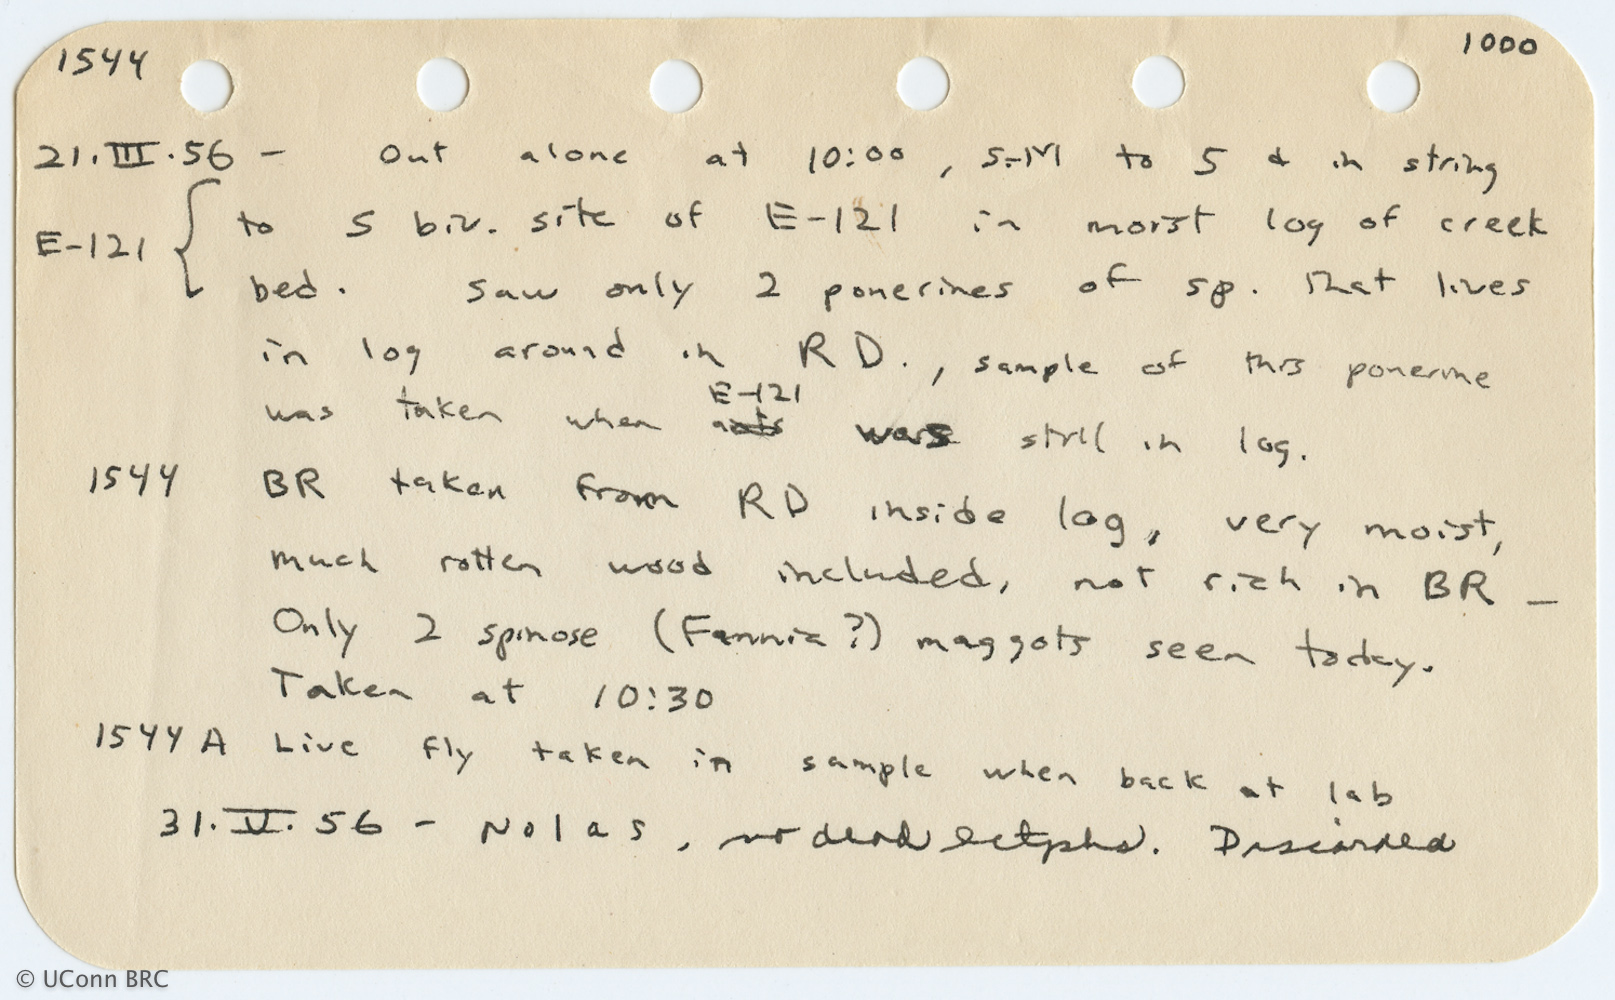 1544 1000
21.III.56 - Out alone at 10:00, S-M to 5 & in string
E-121 { to 5 biv. site of E-121 in moist log of creek
bed. Saw only 2 ponerines of sp. that lives
in log around in RD., sample of this ponerine
E-121
was taken when ants was still in log.
1544 BR taken from RD inside log, very moist,
much rotten wood included, not rich in BR -
Only 2 spinose (Fannia?) maggots seen today.
Taken at 10:30
1544 A Live fly taken in sample when back at lab
31.V.56 - No las, no dead ectphs. Discarded
© UConn BRC